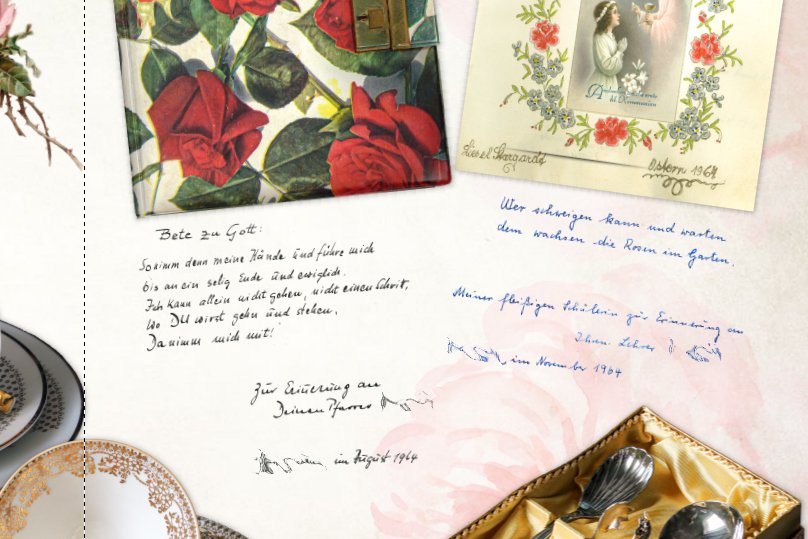 Andenken
hl. Kommunion
Liesel Stargardt
Ostern 1964
Bete zu Gott:
So nimm denn meine Hände und führe mich
bis an ein selig Ende und ewiglich.
Ich kann allein nicht gehen, nicht einen Schrit,
Wo DU wirst gehn und stehen,
Da nimm mich mit!
Zur Erinerung an
Deinen Pfarrer
im August 1964
Wer schweigen kann und warten
dem wachsen die Rosen im Garten.
Meiner fleißigen Schülerin zur Erinnerung an
Ihren Lehrer
im November 1964